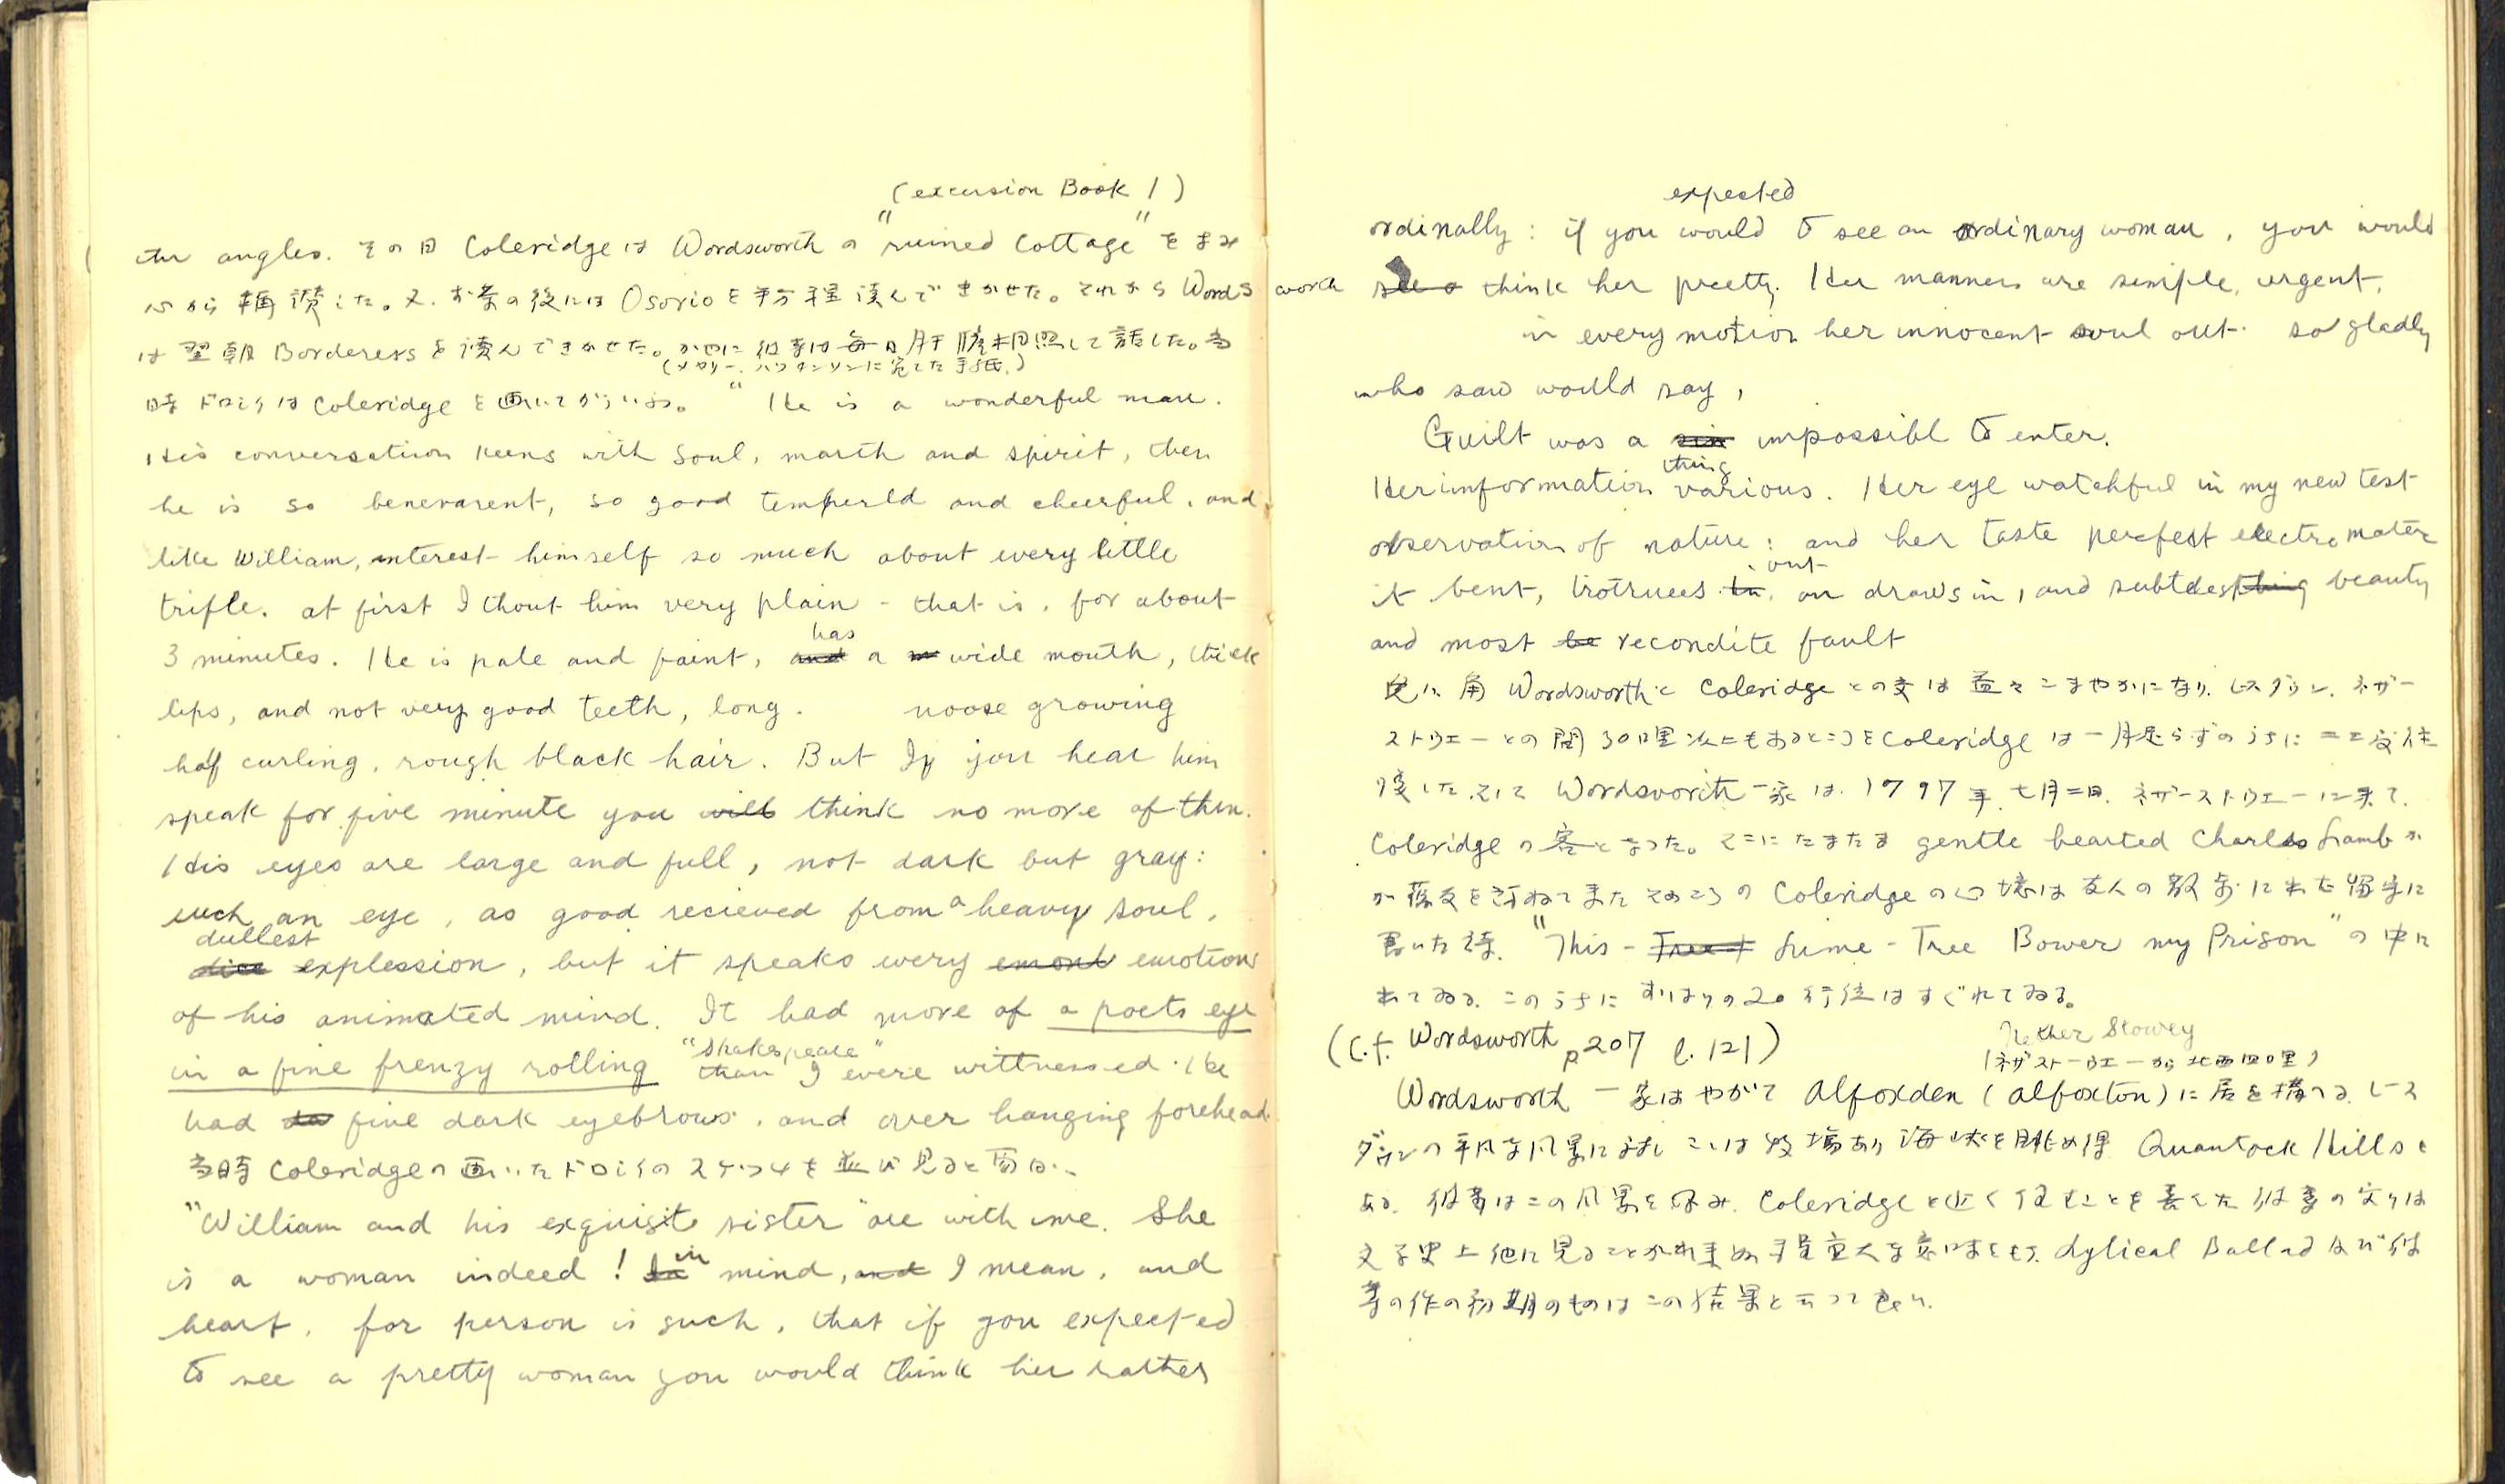 (excursion Book 1)
ctur angles. その日 Coleridgeは Wordsworth の "ruined Cottage" をよみ
から 稱讃した。又、お茶の後には Osorioを 半分程 読んで きかせた。それから Wordsworth
は 翌朝 Borderersを 読んできかせた。かやに 彼等は毎日 肝膽相照して 話した。当
(メアリー、ハツチンソンに宛てた手紙)
時 ドロシイは Coleridge を画いてかういふ。 " He is a wonderful man.
His conversation teens with soul, marth and spirit, then
he is so benevarent, so good temperld and cheerful, and
like William, interest himself so much about every little
trifle. at first I thout him very plain - that is, for about
3 minutes. He is pale and faint, and has a m wide mouth, thick
lips, and not very good teeth, long. noose growing
half curling, rough black hair. But If you hear him
speak for five minute you will think no more of them.
His eyes are large and full, not dark but gray:
such an eye, as good recieved from a heavy soul,
dullest
explession, but it speaks every emont emotion
of his animated mind. It had more of a poets eye
in a fine frenzy rolling "Shakespeare" than I evere wittnessed. He
had fine dark eyebrows, and over hanging forehead.
当時 Coleridgeの画いたドロシイの スケッチも 並べ見ると面白い
"William and his exquisite sister are with me. She
is a woman indeed ! in mind, and I mean, and
heart, for person is such, that if you expected
to see a pretty woman you would think her rather
expected
ordinally : if you would to see an ordinary woman, you would
see a think her pretty. Her manners are semple, urgent,
in every motion her innocent soul out. so gladly
who saw would say,
Guilt was a sin impossibl to enter.
thing
Her information various. Her eye watchful in my new test
observation of nature : and her taste perefest electro mater
out
it bent, trotruees in, an draws in, and subtdest thing beauty
and most be recondite fault
兎に角 Wordsworthと Coleridge との交は 益々こまやかになり、レスダウン、ネザー
ストウエーとの間 30哩以上もあるところをColeridge は一月足らずのうちに 二三度往
復した。そして Wordsworth一家は、1797年、七月二日、ネザーストウエーに来て、
Coleridge の客となった。そこに たまたま gentle hearted Charles Lamb が
が 舊友を訪ねて来た そのころの Coleridge の心境は 友人の散歩に出た留守に
書いた詩、"This - Tree Lime - Tree Bower my Prison" の中に
出てゐる。このうちに すはりの20行位はすぐれてゐる。
(C.f. Wordsworth p207 l. 121)
Nether Stowey
(ネザーストーウエーから北西四哩)
Wordsworth 一家はやがて Alfoxden (alfoxton)に居を構へる。レース
ダウンの平凡な風景に対し こゝは 牧場あり 海峡を眺め得 Quantock Hills も
ある。彼等はこの風景を好み、Coleridgeと近く住むことを喜んだ 彼等の交りは
文学史上 他に見ることが出来ぬ 程重大な意味をもつ。Lylical Ballad 及び 彼
等の作の初期のものは この結果と云つて良い。